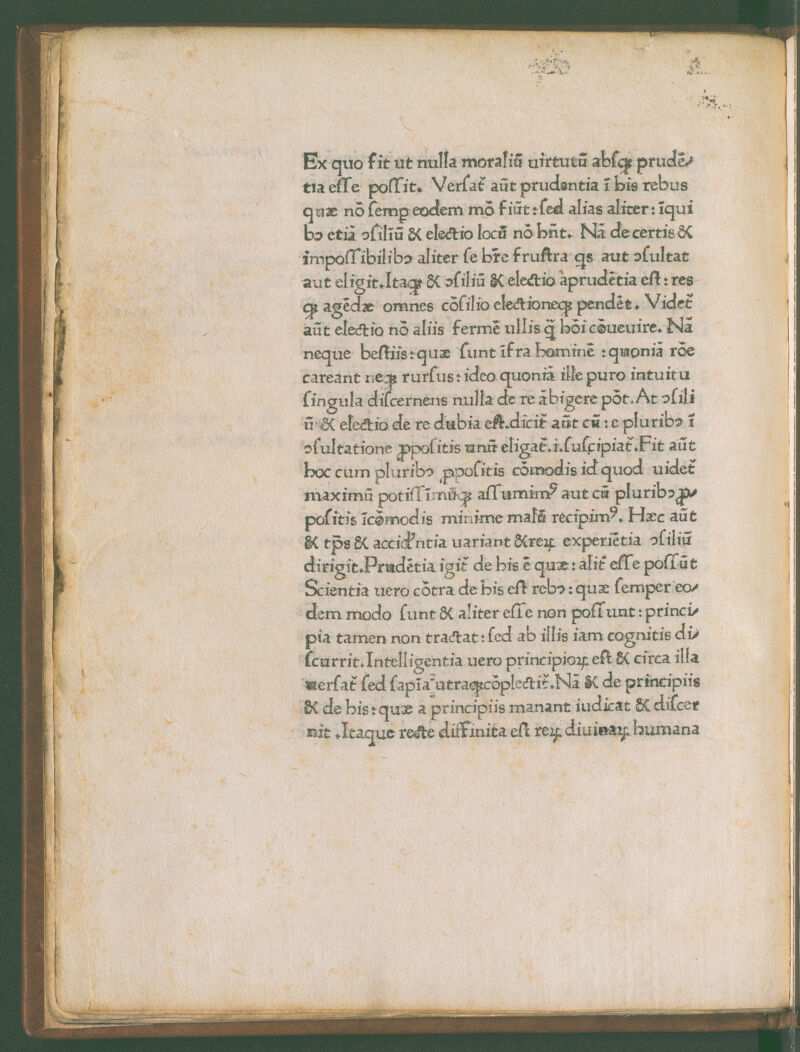 Ex quo fit ut nulla moraliū uirtutū abſqꝫ prudē⸗
tia eſſe poſſit. Verſat᷑ aūt prudentia ī his rebus
quæ nō ſemꝑ eodem mō fiūt: ſed alias aliter: īqui
bꝰ etiā ꝯſiliū & electio locū nō hñt. Nā de certis &
impoſſibilibꝰ aliter ſe hr̄e fruſtra qs aut ꝯſultat
aut eligit. Itaqꝫ & ꝯſiliū & electio aprudētia eſt: res
qꝫ agēdæ omnes cōſilio electioneqꝫ pendēt. Videt᷑
aūt electio nō aliis fermē ullis q̄ hōi cōueuire. Nā
neque beſtiis: quæ ſunt īfra hominē: quoniā rōe
careant neqꝫ rurſus: ideo quoniā ille puro intuitu
ſingula diſcernens nulla de re ābigere pōt. At ꝯſili
ū & electio de re dubia eſt. dicit᷑ aūt cū: e pluribꝰ ī
ꝯſultatione ꝓpoſitis unū eligat᷑. i. ſuſcipiat᷑. Fit aūt
hoc cum pluribꝰ ꝓpoſitis cōmodis id quod uidet᷑
maximū potiſſimūqꝫ aſſumimꝰ aut cū pluribꝰ ꝓ⸗
poſitis īcōmodis minime malū recipimꝰ. Hæc aūt
& tp̄s & accidn̄tia uariant & reꝝ experiētia ꝯſiliū
dirigit. Prudētia igit᷑ de his ē quæ: alit᷑ eſſe poſſūt
Scientia uero cōtra de his eſt rebꝰ: quæ ſemper eo⸗
dem modo ſunt & aliter eſſe non poſſunt: princi⸗
pia tamen non tractat: ſed ab illis iam cognitis di⸗
ſcurrit. Intelligentia uero principioꝝ eſt & circa illa
uerſat᷑ ſed ſapīa utraqꝫ cōplectit᷑. Nā & de principiis
& de his: quæ a principiis manant iudicat & diſcer
nit. Itaque recte diffinita eſt reꝝ diuinaꝝ humana